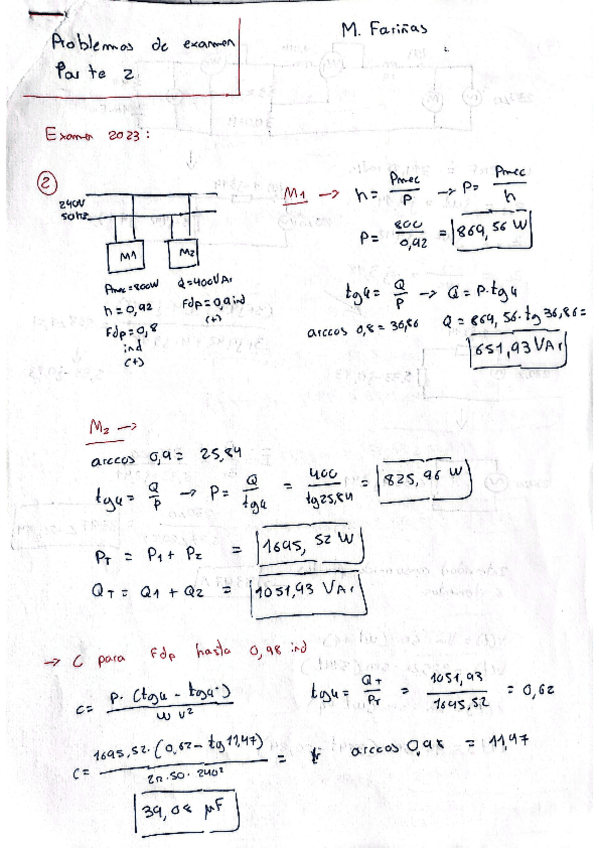 Problemas de examen
Parte 2
M. Fariñas
Examen 2023:
2
240V
50Hz
M1
M2
Pmec=800W
h=0,92
Fdp=0,8
ind
(+)
Q=400VAr
Fdp=0,9 ind
(+)
M1 → h = Pmec/P → P = Pmec/h
P = 800/0,92 = 869,56 W
tgφ = Q/P → Q = P·tgφ
arccos 0,8 = 36,86 Q = 869,56·tg 36,86 =
651,93 VAr
M2 →
arccos 0,9 = 25,84
tgφ = Q/P → P = Q/tgφ = 400/tg25,84 = 825,96 W
PT = P1 + P2 = 1695,52 W
QT = Q1 + Q2 = 1051,93 VAr
→ C para Fdp hasta 0,98 ind
C = P·(tgφ - tgφ')/ω V²
tgφ = QT/PT = 1051,93/1695,52 = 0,62
C = 1695,52·(0,62 - tg 11,47)/2π·50·240² =
arccos 0,98 = 11,47
39,08 μF